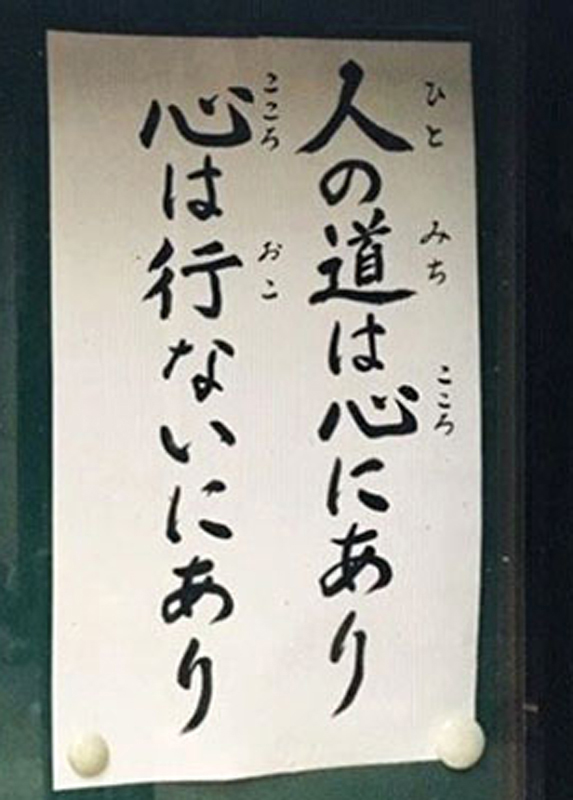 人の道は心にあり
ひと みち こころ
心は行ないにあり
こころ おこ